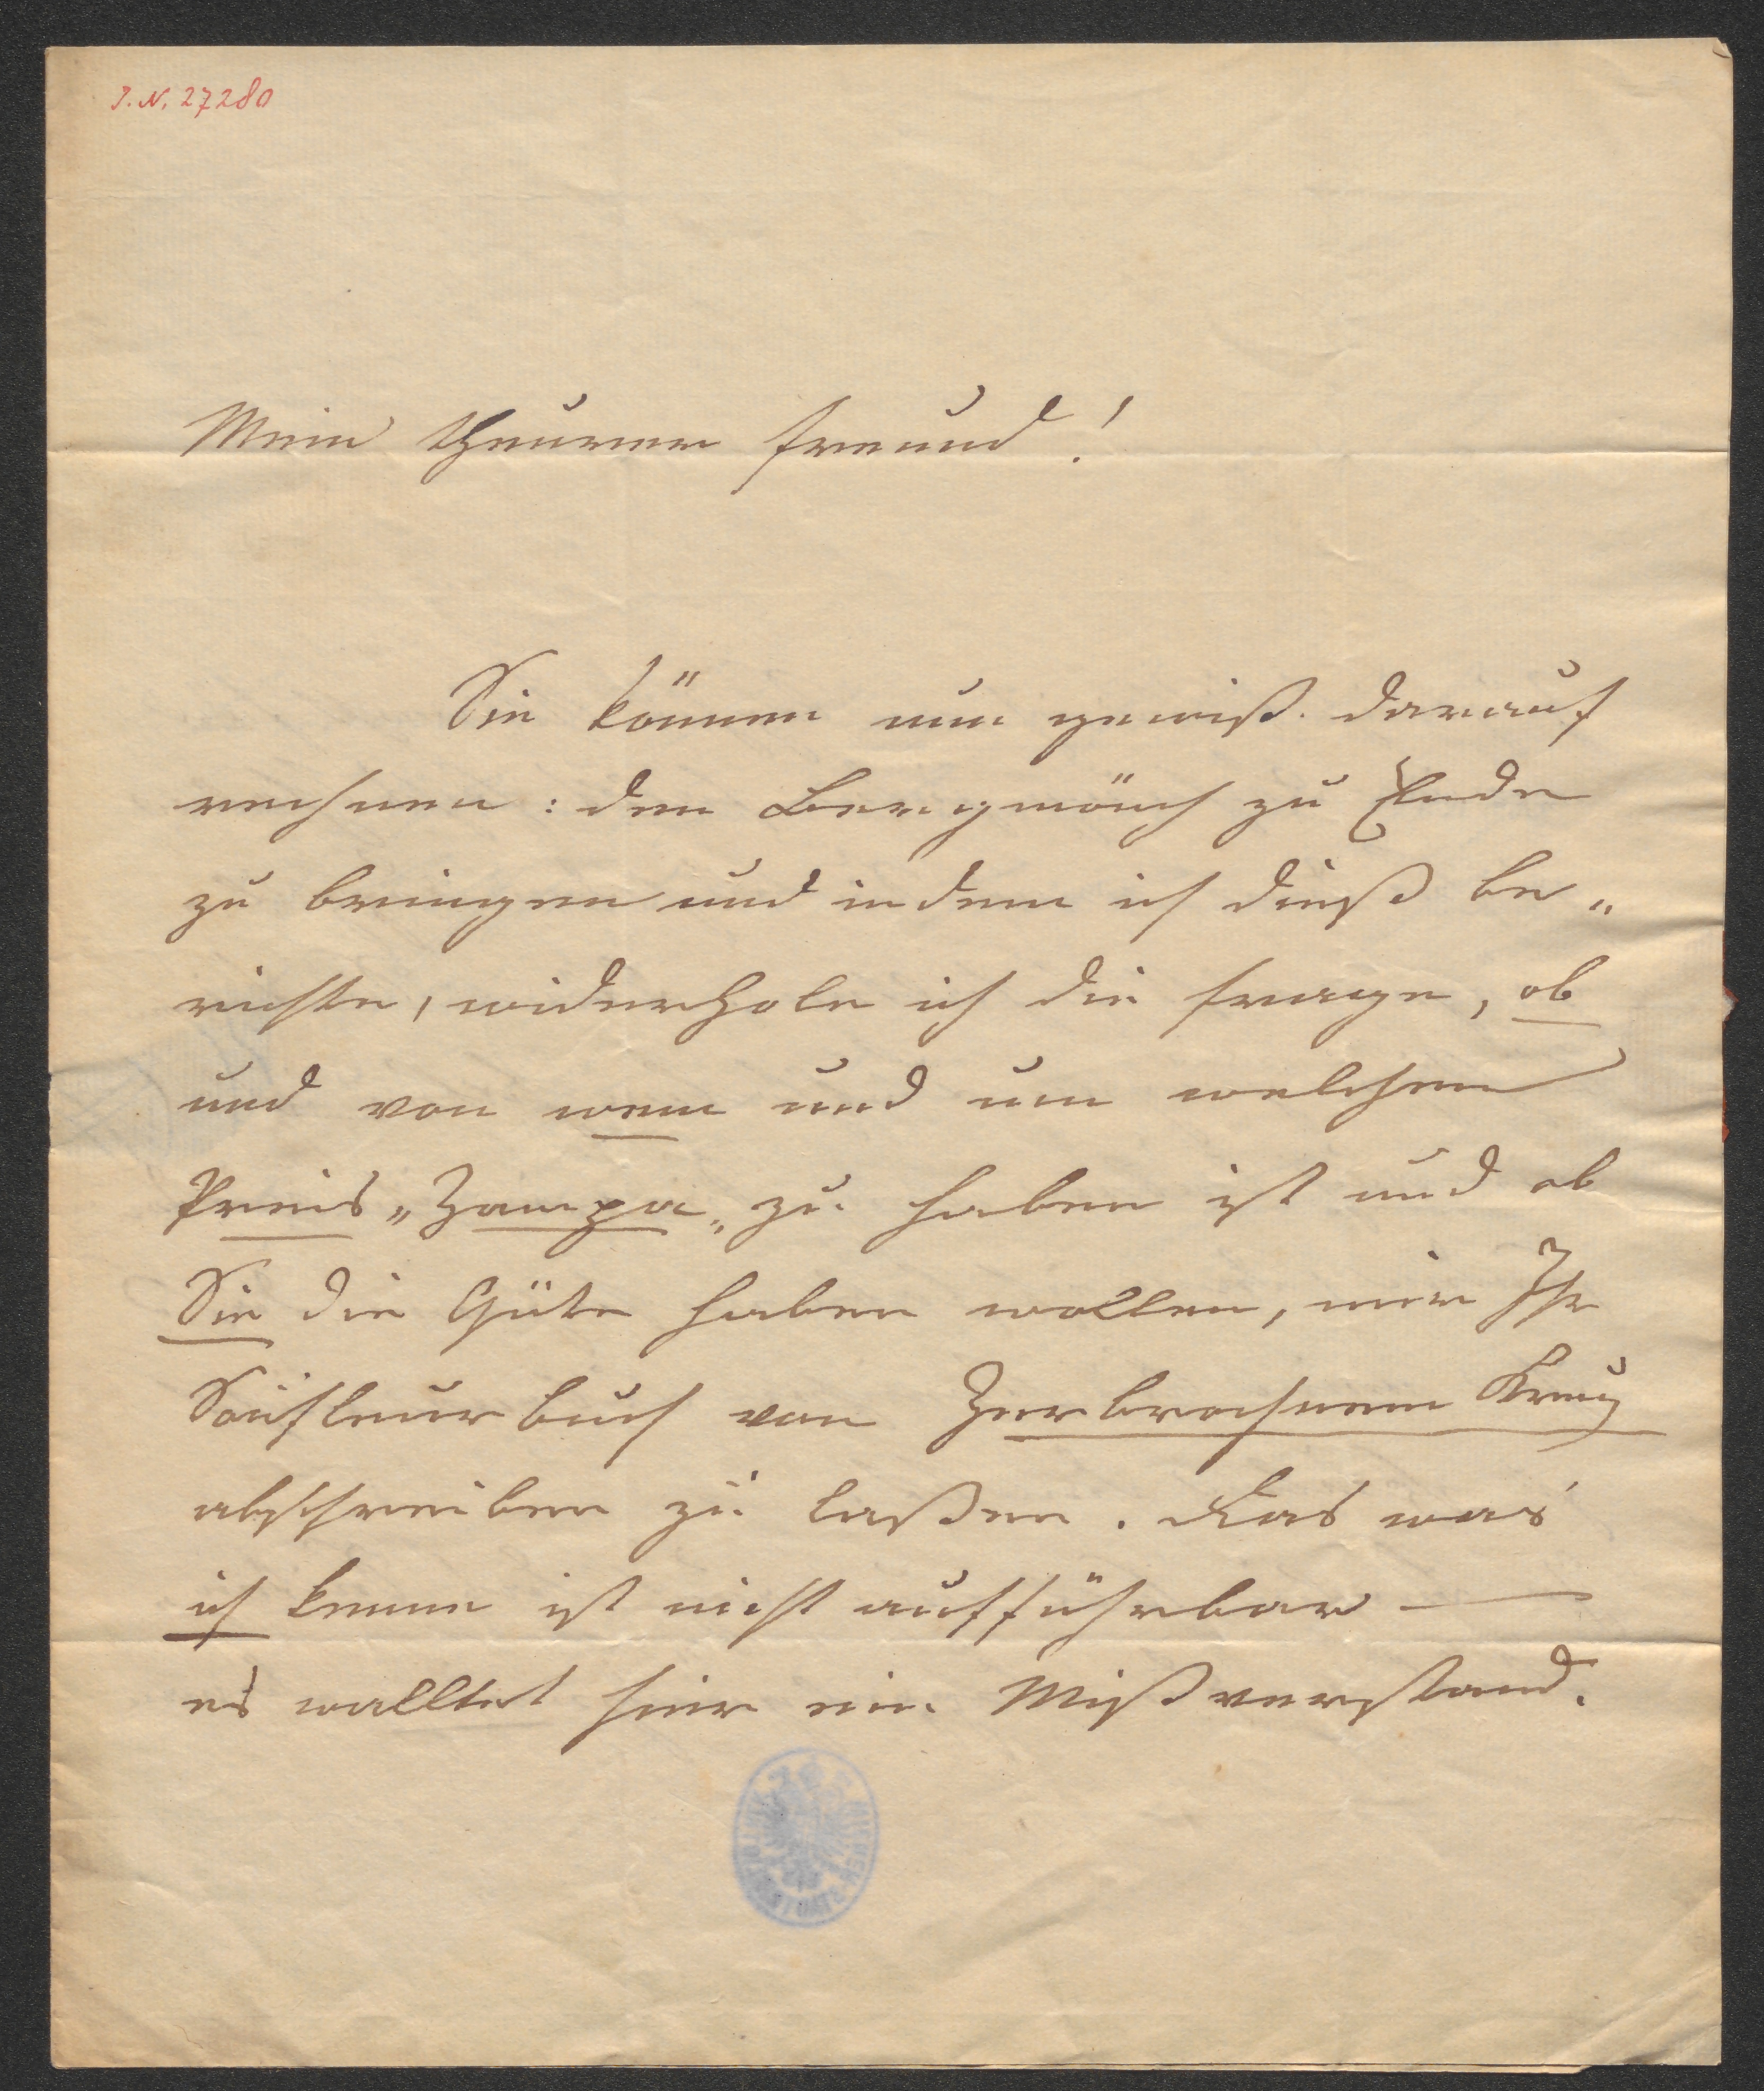 I. N. 27280
Mein theurer Freund!
Sie können nun gewiß darauf
rechnen: den Bergmönch zu Ende
zu bringen und indem ich dieß be„
richte, widerhole ich die Frage, ob
und von wem und um welchen
Preis „Zampa„ zu haben ist und ob
Sie die Güte haben wollen, mir Ihr
Soufleurbuch von Zerbrochnem Krug
abschreiben zu laßen. Das was
ich kenne ist nicht aufführbar —
es walltet hier ein Mißverstand.